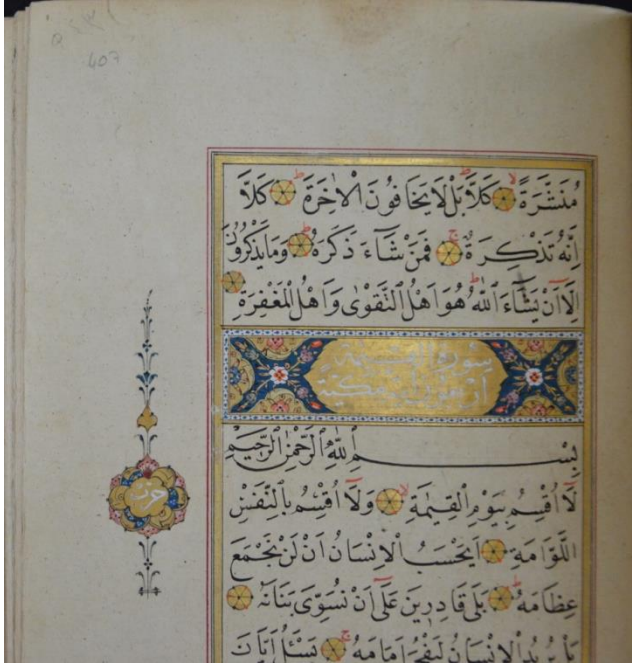 مُنَشَّرَةً كَلَّا بَلْ لَا يَخَافُونَ الْاٰخِرَةَ كَلَّا
اِنَّهُ تَذْكِرَةٌ فَمَنْ شَآءَ ذَكَرَهُ وَمَا يَذْكُرُونَ
اِلَّآ اَنْ يَشَآءَ اللّٰهُ هُوَ اَهْلُ التَّقْوٰى وَاَهْلُ الْمَغْفِرَةِ
سورة القيمة
اربعون آية مكية
حزب
بِسْمِ اللّٰهِ الرَّحْمٰنِ الرَّحِيمِ
لَآ اُقْسِمُ بِيَوْمِ الْقِيٰمَةِ وَلَآ اُقْسِمُ بِالنَّفْسِ
اللَّوَّامَةِ اَيَحْسَبُ الْاِنْسَانُ اَنْ لَنْ نَجْمَعَ
عِظَامَهُ بَلٰى قَادِرِينَ عَلٰٓى اَنْ نُسَوِّىَ بَنَانَهُ
بَلْ يُرِيدُ الْاِنْسَانُ لِيَفْجُرَ اَمَامَهُ يَسْئَلُ اَيَّانَ